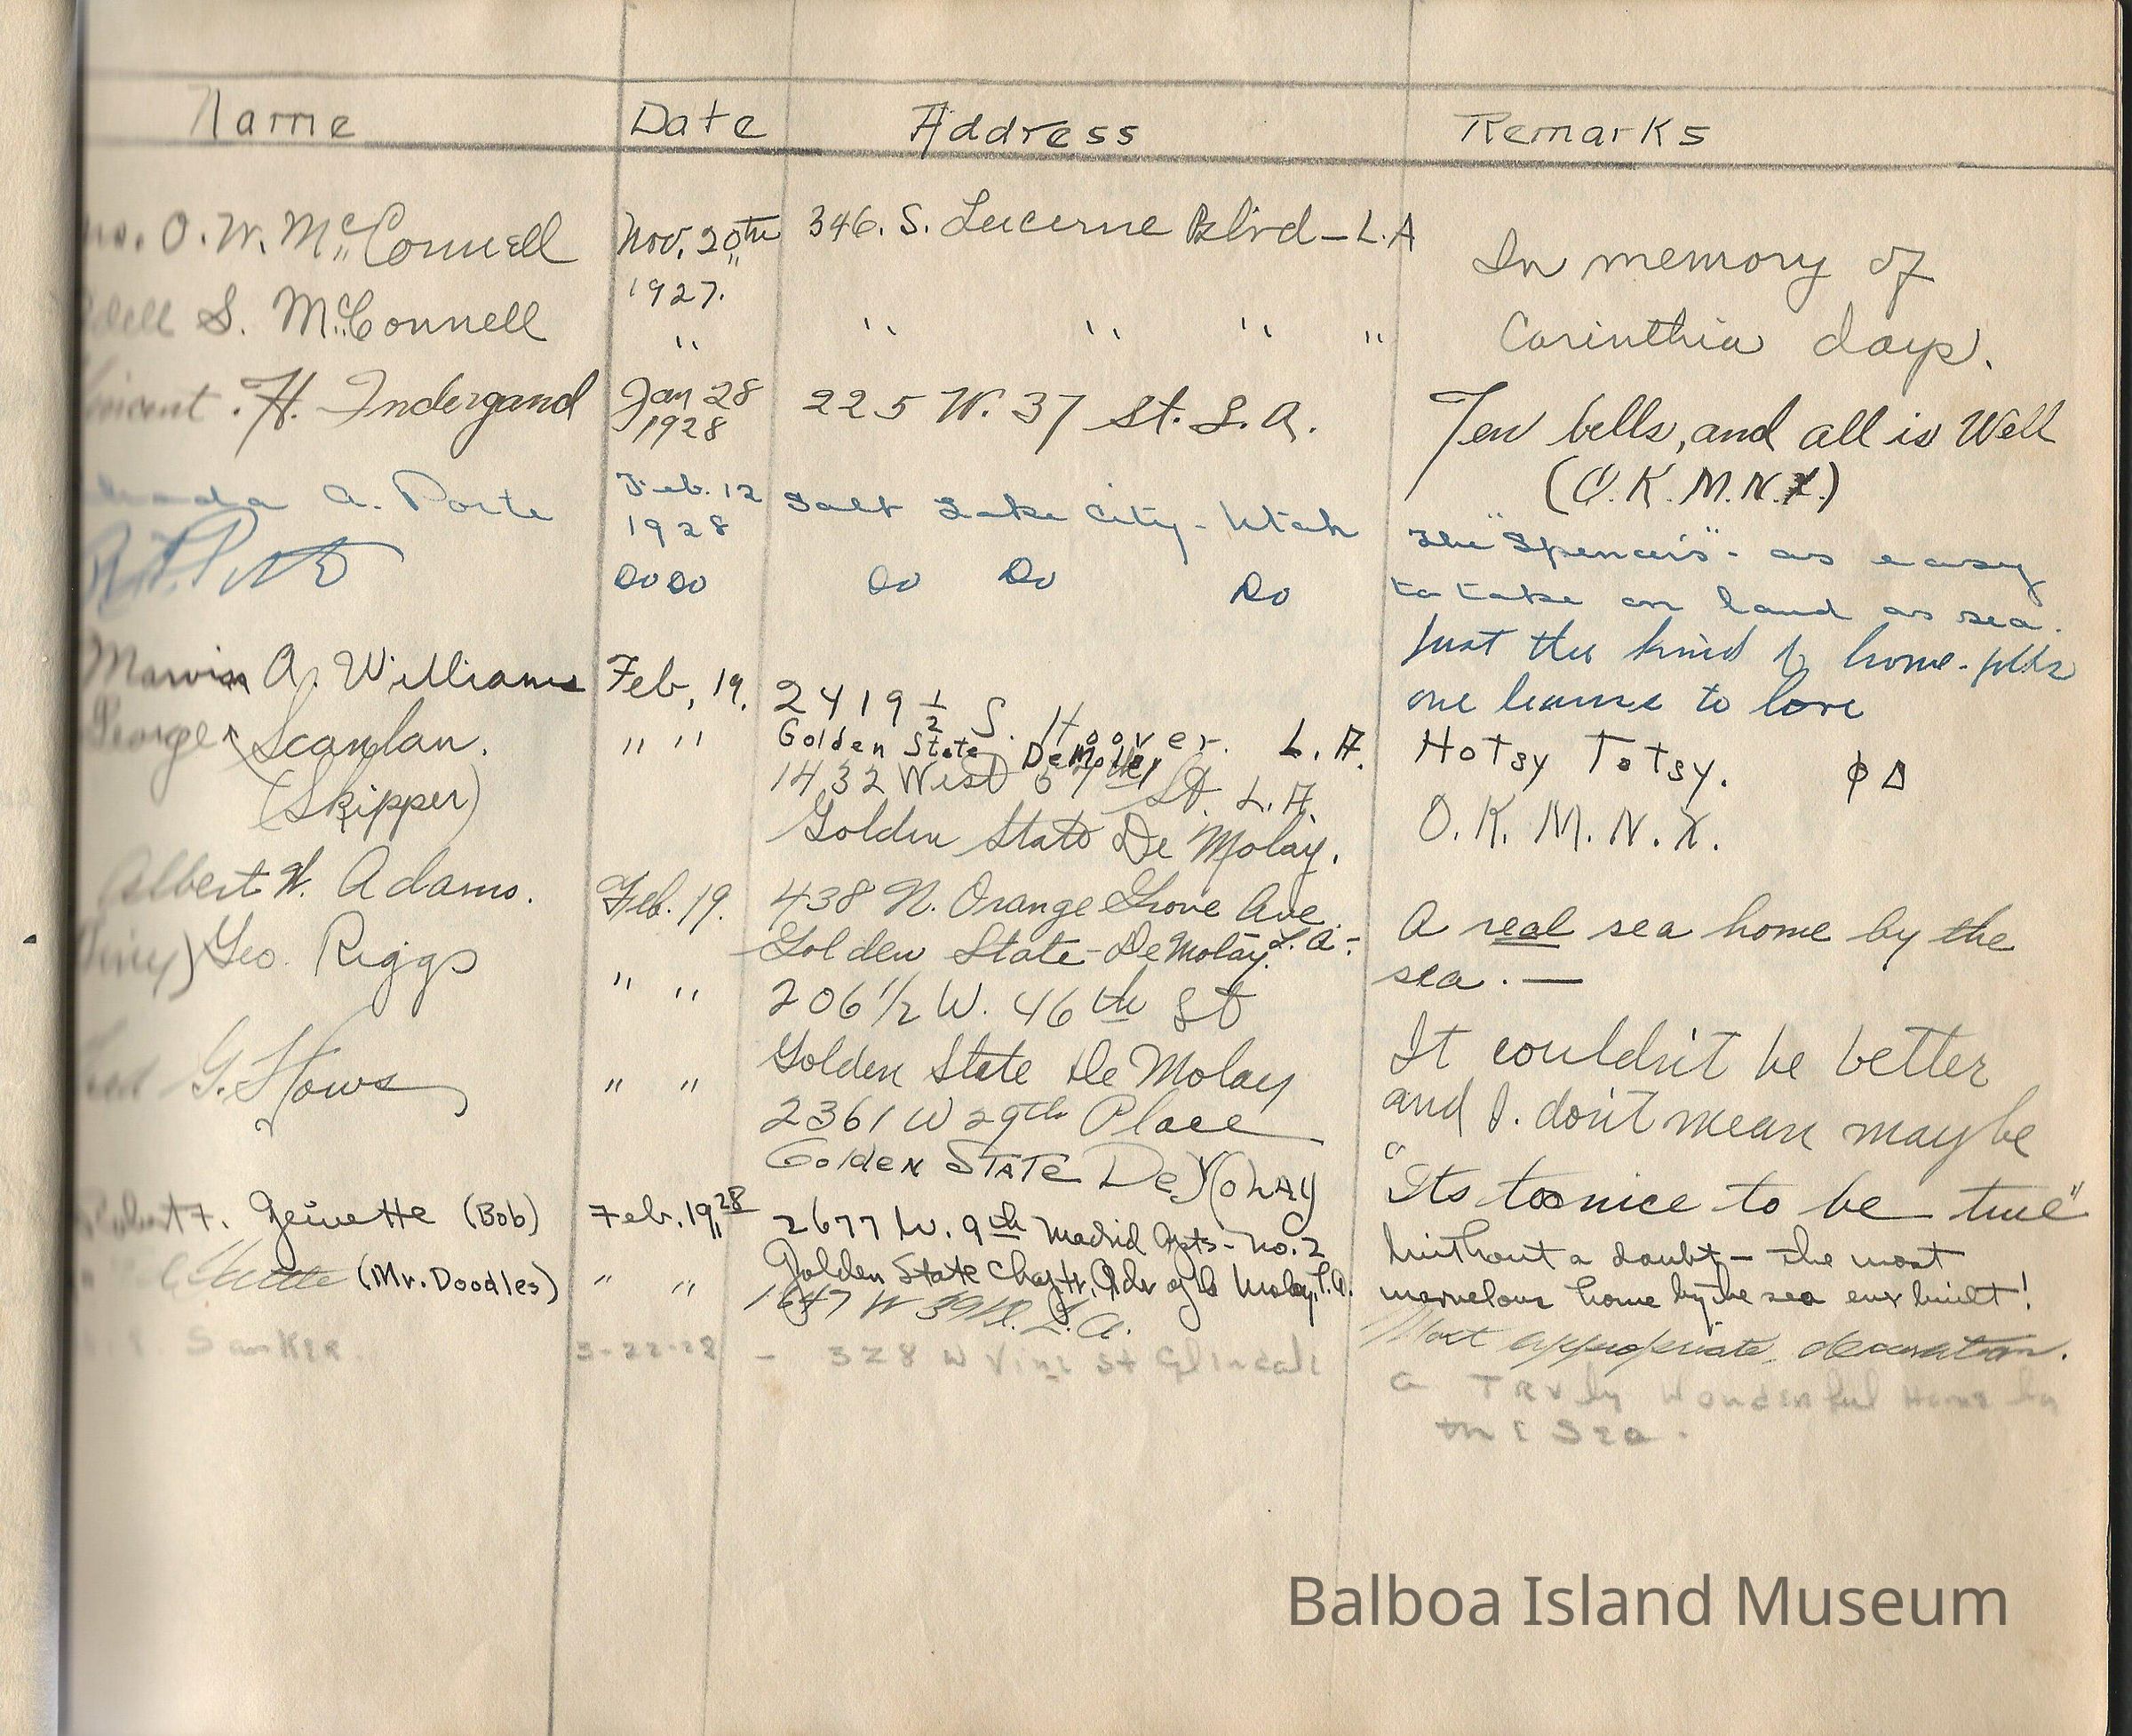 Name Date Address Remarks
O. W. McConnell Nov. 20th 1927. 346. S. Lucerne Blvd - L.A
In memory of
S. McConnell " " " " "
Corinthia days.
H. Indergand Jan 28 1928 225 W. 37 St. L.A.
Ten bells, and all is Well
(O.K.M.N.X.)
A. Porte Feb. 12 1928 Salt Lake City - Utah
The "Spencers" - as easy
to take on land as sea.
Do Do Do Do Do
Just the kind of home-folks
one learns to love
Marvin A. Williams Feb. 19. 2419 1/2 S. Hoover. L.A.
Golden State DeMolay
Hotsy Totsy. Φ Δ
George Scanlan. " " 1432 West St. L.A.
(Skipper)
Golden State De Molay.
O.K.M.N.X.
Albert W. Adams. Feb. 19. 438 N. Orange Grove Ave.
Golden State - DeMolay. L.A. -
A real sea home by the
sea. —
Geo. Riggs " " 206 1/2 W. 46th St
Golden State De Molay
It couldn't be better
and I. don't mean maybe
G. Hows " " 2361 W 29th Place
Golden State DeMolay
"Its too nice to be true"
Geivette (Bob) Feb. 19, 28 2677 W. 9th Madrid Apts - No. 2
Golden State Chapter, Order of De Molay, L.A.
Without a doubt - the most
marvelous home by the sea ever built!
(Mr. Doodles) " " 1647 W L.A.
Most appropriate decoration.
Sanker 3-22-28 - 328 W Vine St Glendale
a Truly Wonderful Home by
the Sea.
Balboa Island Museum